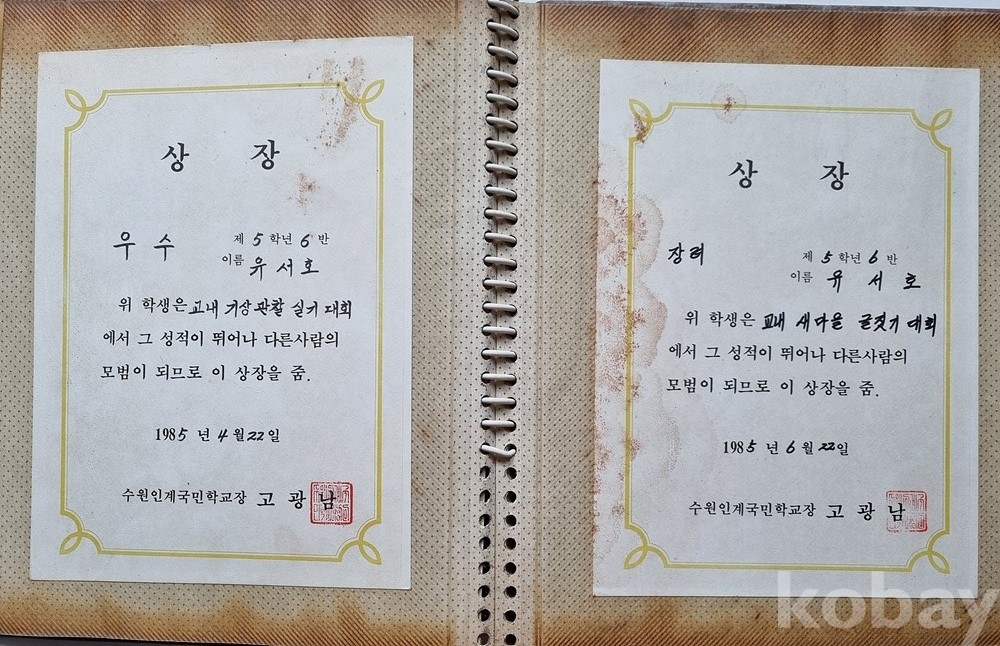 상 장
우 수
제 5 학년 6 반
이름 유 서 호
위 학생은 교내 기상 관찰 실기 대회
에서 그 성적이 뛰어나 다른사람의
모범이 되므로 이 상장을 줌.
1985 년 4 월 22 일
수원인계국민학교장 고 광 남
상 장
장려
제 5 학년 6 반
이름 유 서 호
위 학생은 교내 새마을 글짓기 대회
에서 그 성적이 뛰어나 다른사람의
모범이 되므로 이 상장을 줌.
1985 년 6 월 22 일
수원인계국민학교장 고 광 남
kobay